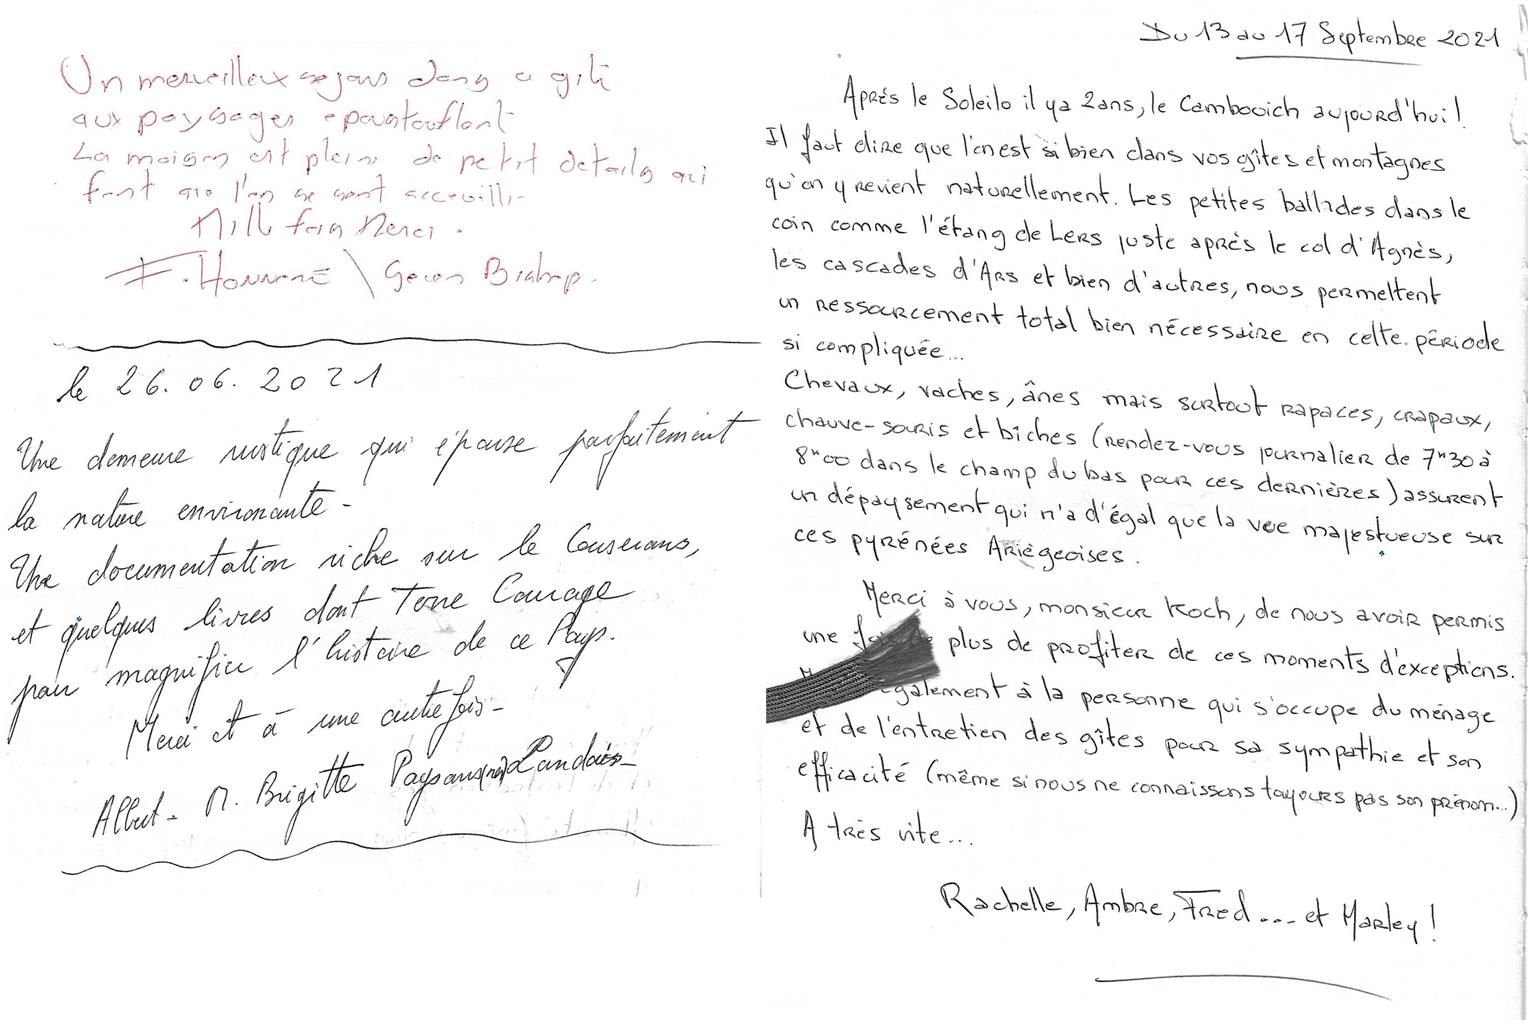 Un merveilleux sejour dans ce gîte
aux paysages epoustouflant
La maison est pleine de petit details qui
font que l'on se sent accueilli.
Mille fois Merci.
F.
le 26.06.2021
Une demeure rustique qui épouse parfaitement
la nature environante-
Une documentation riche sur le Couserans,
et quelques livres dont Terre Courage
pour magnifier l'histoire de ce Pays.
Merci et à une autre fois-
Albert - M. Brigitte Landais-
Du 13 au 17 Septembre 2021
Après le Soleilo il ya 2ans, le Cambouich aujourd'hui!
Il faut dire que l'on est si bien dans vos gîtes et montagnes
qu'on y revient naturellement. Les petites ballades dans le
coin comme l'étang de Lers juste après le col d'Agnès,
les cascades d'Ars et bien d'autres, nous permettent
un ressourcement total bien nécessaire en cette période
si compliquée...
Chevaux, vaches, ânes mais surtout rapaces, crapaux,
chauve-souris et biches (rendez-vous journalier de 7h30 à
8h00 dans le champ du bas pour ces dernières) assurent
un dépaysement qui n'a d'égal que la vue majestueuse sur
ces pyrénées Ariègeoises.
Merci à vous, monsieur Koch, de nous avoir permis
une plus de profiter de ces moments d'exceptions.
également à la personne qui s'occupe du ménage
et de l'entretien des gîtes pour sa sympathie et son
efficacité (même si nous ne connaissons toujours pas son prénom...)
A très vite...
Rachelle, Ambre, Fred.... et Marley!